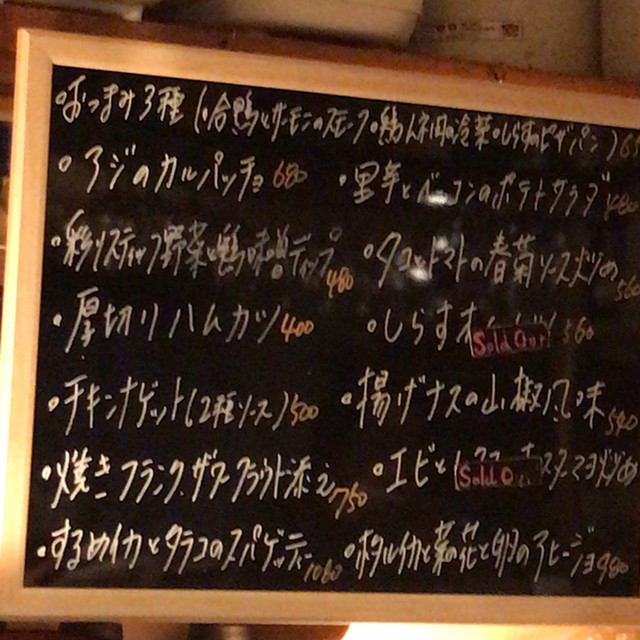 ・おつまみ3種(・合鴨とサーモンのスモーク・鶏ハネ肉の冷菜・しらすのピザパン)
・アジのカルパッチョ 680
・里芋とベーコンのポテトサラダ 480
・彩りスティック野菜と鴨味噌ディップ 480
・タコとトマトの春菊ソース炒め
・厚切りハムカツ 400
・しらすオ Sold Out! 560
・チキンナゲット(2種ソース)500
・揚げナスの山椒風味 540
・焼きフランク、ザワークラウト添え 750
・エビと Sold Out スターマヨ炒め
・するめイカとタラコのスパゲッティー 1080
・ホタルイカと菜の花と卵のアヒージョ 980